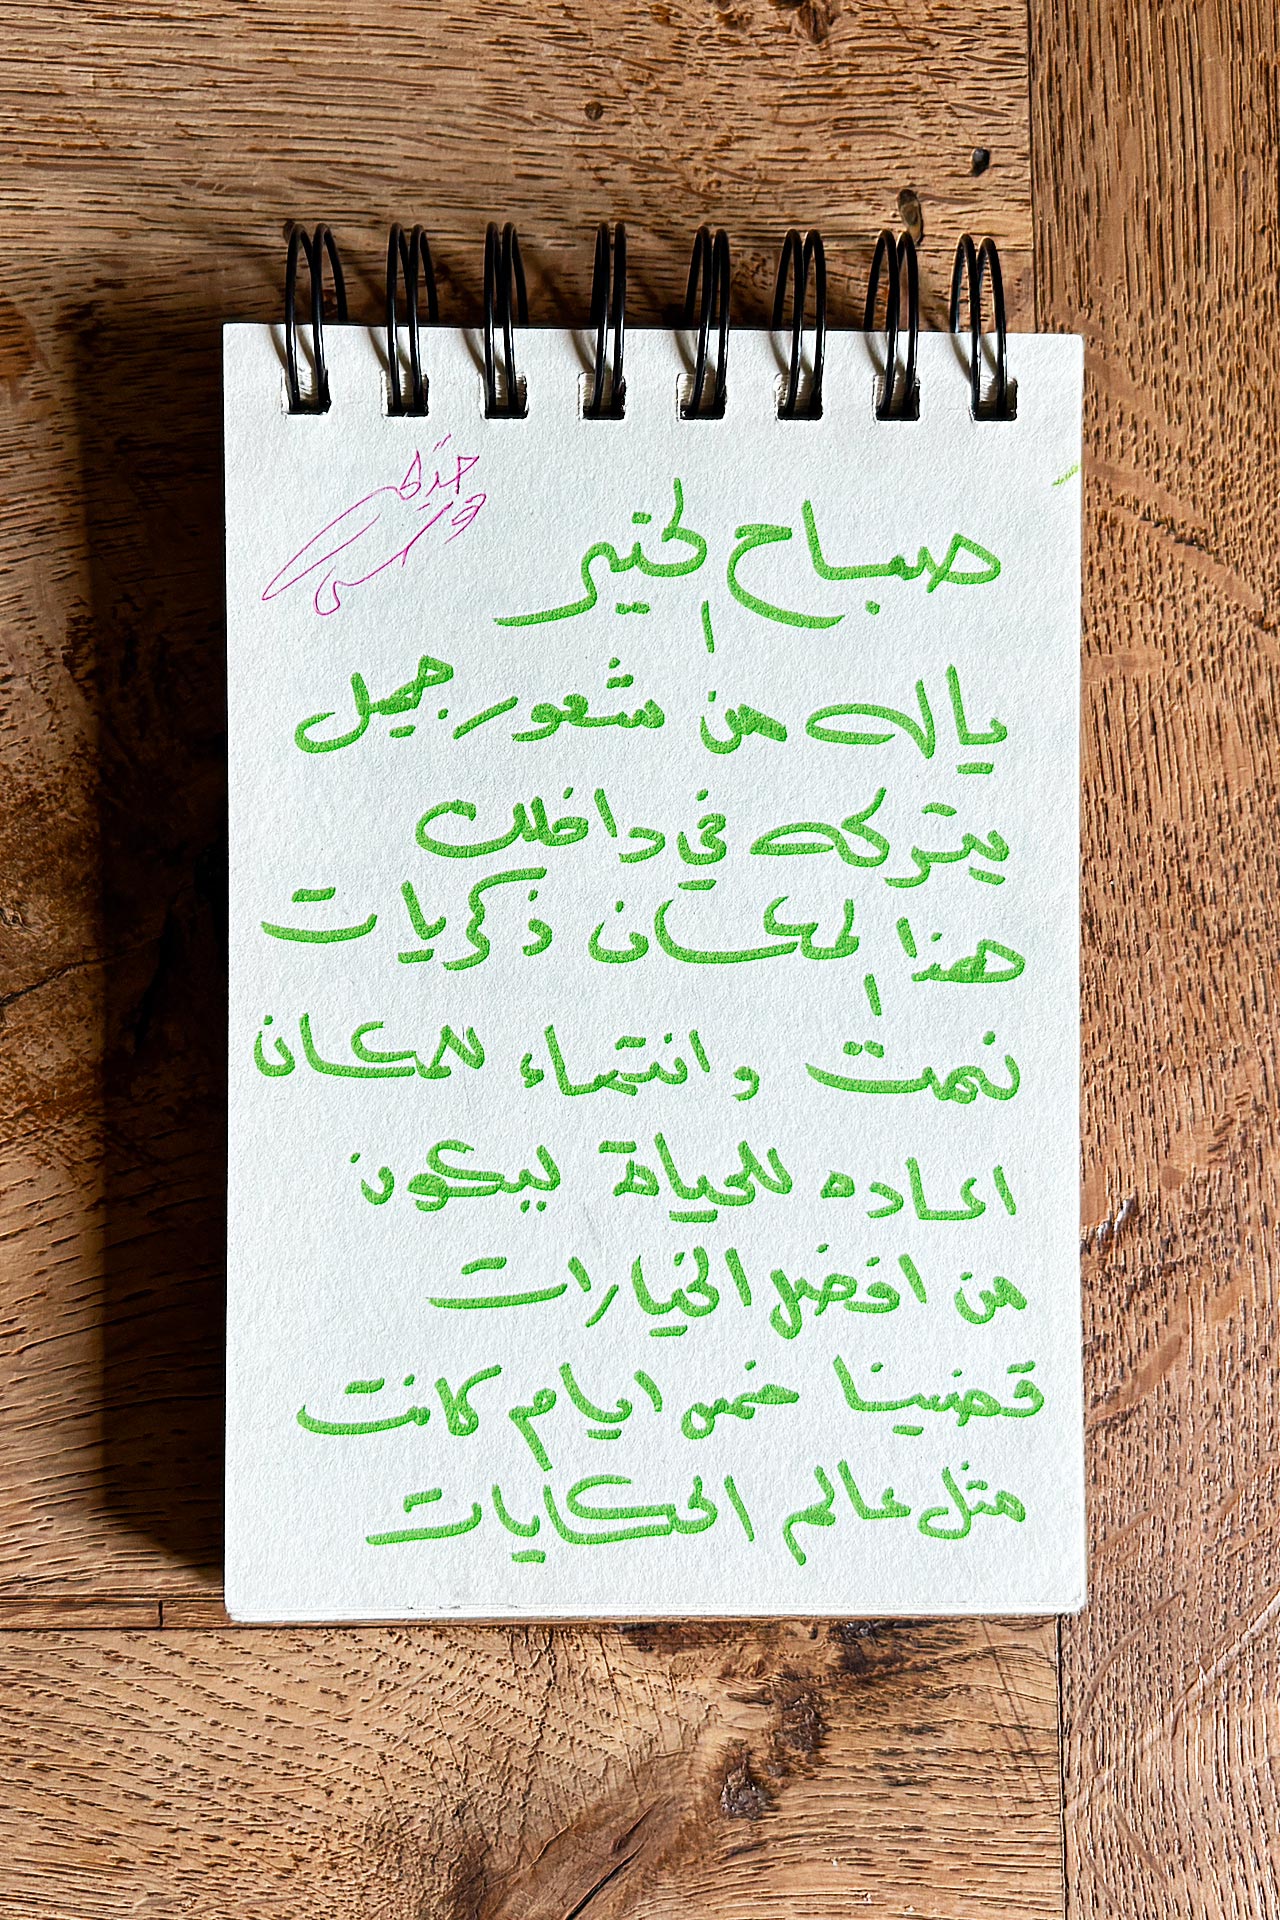 صباح الخير
ياله من شعور جميل
يتركه في داخلك
هذا المكان ذكريات
نمت و انتماء للمكان
اعاده للحياة ليكون
من افضل الخيارات
قضينا خمس ايام كانت
مثل عالم الحكايات